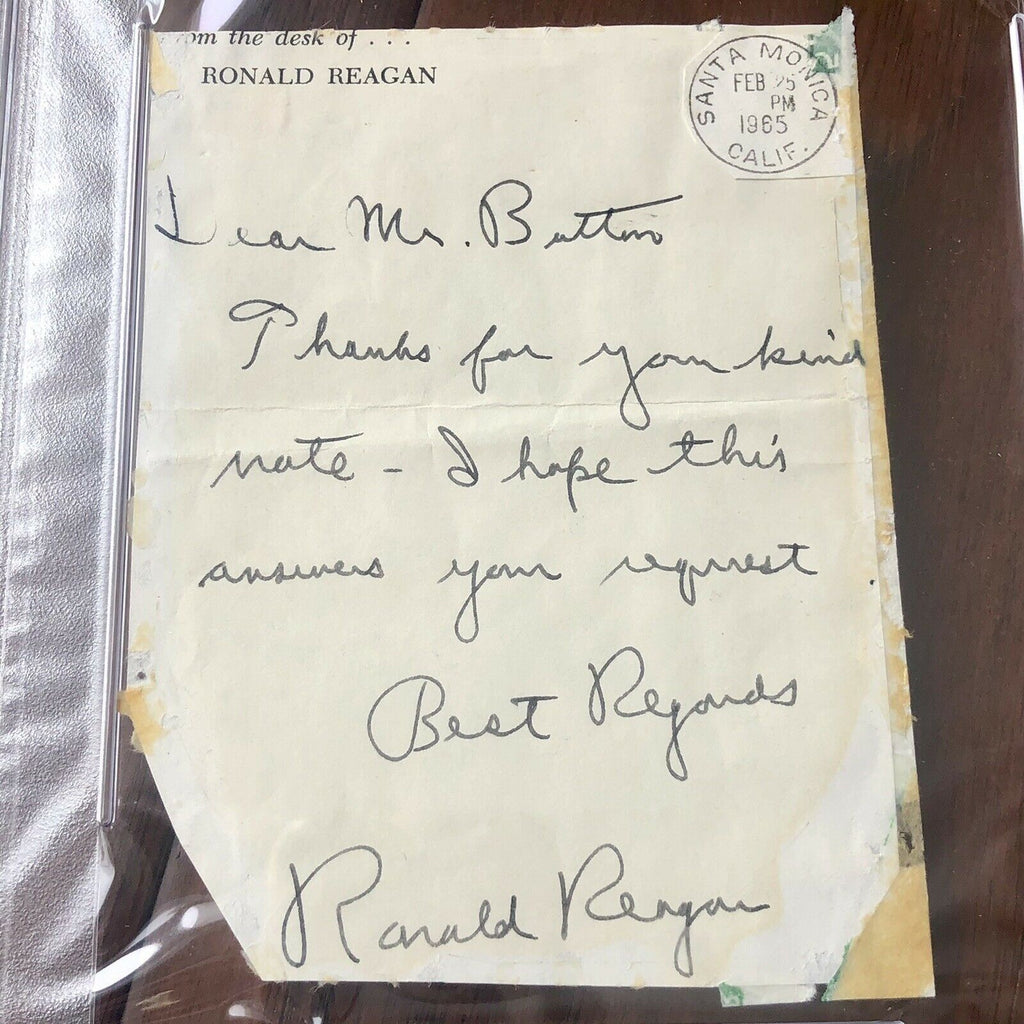 om the desk of . . .
RONALD REAGAN
SANTA MONICA
FEB 25
PM
1965
CALIF.
Dear Mr. Button
Thanks for your kind
note - I hope this
answers your request
Best Regards
Ronald Reagan